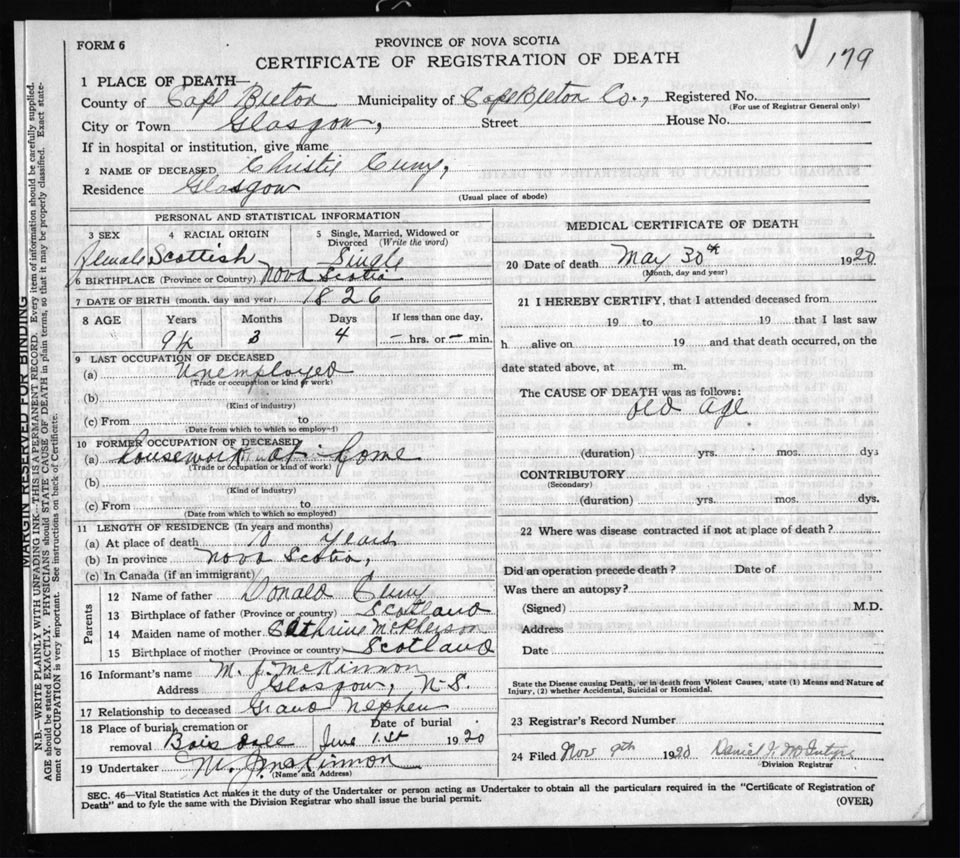 FORM 6
PROVINCE OF NOVA SCOTIA
CERTIFICATE OF REGISTRATION OF DEATH
179
1 PLACE OF DEATH—
County of Cape Breton Municipality of Cape Breton Co., Registered No.
(For use of Registrar General only)
City or Town Glasgow, Street House No.
If in hospital or institution, give name
2 NAME OF DECEASED Christie
Residence Glasgow
(Usual place of abode)
PERSONAL AND STATISTICAL INFORMATION
3 SEX 4 RACIAL ORIGIN 5 Single, Married, Widowed or Divorced (Write the word)
female Scottish Single
6 BIRTHPLACE (Province or Country) Nova Scotia
7 DATE OF BIRTH (month, day and year) 1826
8 AGE Years Months Days If less than one day,
94 3 4 — hrs. or — min.
9 LAST OCCUPATION OF DECEASED
(a) Unemployed
(Trade or occupation or kind of work)
(b)
(Kind of industry)
(c) From to
(Date from which to which so employed)
10 FORMER OCCUPATION OF DECEASED
(a) housework at home
(Trade or occupation or kind of work)
(b)
(Kind of industry)
(c) From to
(Date from which to which so employed)
11 LENGTH OF RESIDENCE (In years and months)
(a) At place of death 10 years
(b) In province Nova Scotia,
(c) In Canada (if an immigrant)
Parents
12 Name of father Donald
13 Birthplace of father (Province or country) Scotland
14 Maiden name of mother Cathrine McPherson
15 Birthplace of mother (Province or country) Scotland
16 Informant's name M. J. McKinnon
Address Glasgow, N-S.
17 Relationship to deceased Grand Nephew
18 Place of burial, cremation or removal Boisdale Date of burial June 1st 1920
19 Undertaker M. J. McKinnon
(Name and Address)
MEDICAL CERTIFICATE OF DEATH
20 Date of death May 30th 1920
(Month, day and year)
21 I HEREBY CERTIFY, that I attended deceased from
19 to 19 that I last saw
h alive on 19 and that death occurred, on the
date stated above, at m.
The CAUSE OF DEATH was as follows:
old age
(duration) yrs. mos. dys
CONTRIBUTORY
(Secondary)
(duration) yrs. mos. dys.
22 Where was disease contracted if not at place of death?
Did an operation precede death? Date of
Was there an autopsy?
(Signed) M.D.
Address
Date
State the Disease causing Death, or in death from Violent Causes, state (1) Means and Nature of
Injury, (2) whether Accidental, Suicidal or Homicidal.
23 Registrar's Record Number
24 Filed Nov 9th 1920 Daniel J. McIntyre
Division Registrar
SEC. 46—Vital Statistics Act makes it the duty of the Undertaker or person acting as Undertaker to obtain all the particulars required in the "Certificate of Registration of
Death" and to fyle the same with the Division Registrar who shall issue the burial permit.
(OVER)
MARGIN RESERVED FOR BINDING
N.B.—WRITE PLAINLY WITH UNFADING INK—THIS IS A PERMANENT RECORD. Every item of information should be carefully supplied.
AGE should be stated EXACTLY. PHYSICIANS should STATE CAUSE OF DEATH in plain terms, so that it may be properly classified. Exact state-
ment of OCCUPATION is very important. See instructions on back of Certificate.